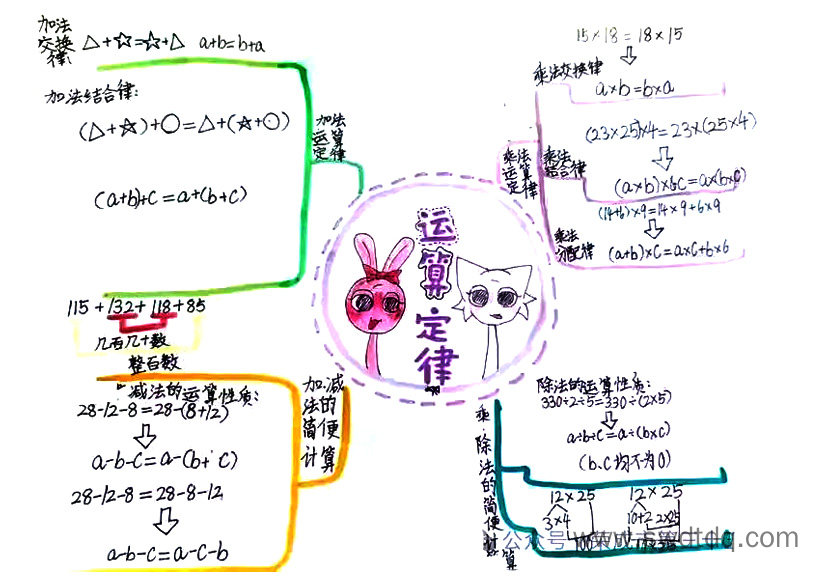 运算定律
加法运算定律
加法交换律:
△+☆=☆+△ a+b=b+a
加法结合律:
(△+☆)+○=△+(☆+○)
(a+b)+c=a+(b+c)
乘法运算定律
15×18=18×15
乘法交换律
a×b=b×a
(23×25)×4=23×(25×4)
乘法结合律
(14+6)×9=14×9+6×9
乘法分配律
(a+b)×c=a×c+b×6
115+132+118+85
几百几十数
整百数
加、减法的简便计算
减法的运算性质:
28-12-8=28-(8+12)
a-b-c=a-(b+c)
28-12-8=28-8-12
a-b-c=a-c-b
乘、除法的简便计算
除法的运算性质:
330÷2÷5=330÷(2×5)
a÷b÷c=a÷(b×c)
(b、c均不为0)
12×25 12×25
3×4 10+2 2×25
100
公众号
www.swdtdq.com